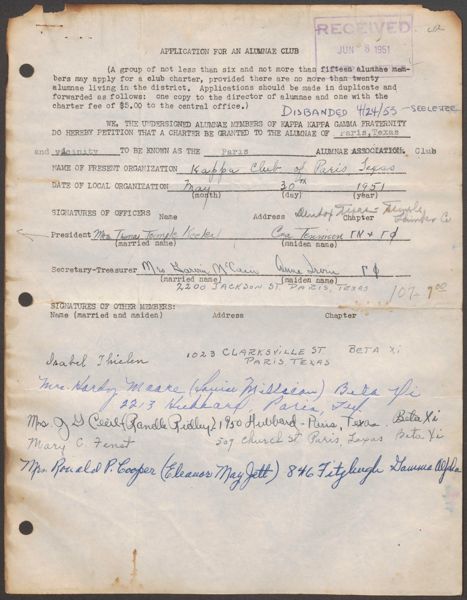 RECEIVED
JUN 8 1951
APPLICATION FOR AN ALUMNAE CLUB
(A group of not less than six and not more than fifteen alumnae mem-
bers may apply for a club charter, provided there are no more than twenty
alumnae living in the district. Applications should be made in duplicate and
forwarded as follows: one copy to the director of alumnae and one with the
charter fee of $5.00 to the central office.)
DISBANDED 4/24/53 - SEE LETTER
WE, THE UNDERSIGNED ALUMNAE MEMBERS OF KAPPA KAPPA GAMMA FRATERNITY
DO HEREBY PETITION THAT A CHARTER BE GRANTED TO THE ALUMNAE OF Paris, Texas
and vicinity TO BE KNOWN AS THE Paris ALUMNAE ASSOCIATION. Club
NAME OF PRESENT ORGANIZATION Kappa Club of Paris Texas
DATE OF LOCAL ORGANIZATION May 30th 1951
(month) (day) (year)
SIGNATURES OF OFFICERS Name Address Chapter
President Mrs. Thomas Temple
(married name) (maiden name)
Secretary-Treasurer Mrs McCuin Anne ΓΦ
(married name) (maiden name)
2200 JACKSON ST PARIS, TEXAS
SIGNATURES OF OTHER MEMBERS:
Name (married and maiden) Address Chapter
Isabel Thielen 1023 CLARKSVILLE ST BETA Xi
PARIS TEXAS
Mrs. Hardy Moore (Louise Millican) Beta Xi
2213 Hubbard, Paris, Tex.
Mrs J G Cecil (Randle Ridley) 1950 Hubbard - Paris, Texas Beta Xi
Mary C. 509 Church St Paris Texas Beta Xi
Mrs. Ronald P. Cooper (Eleanor May Jett) 846 Fitzhugh Gamma Alpha